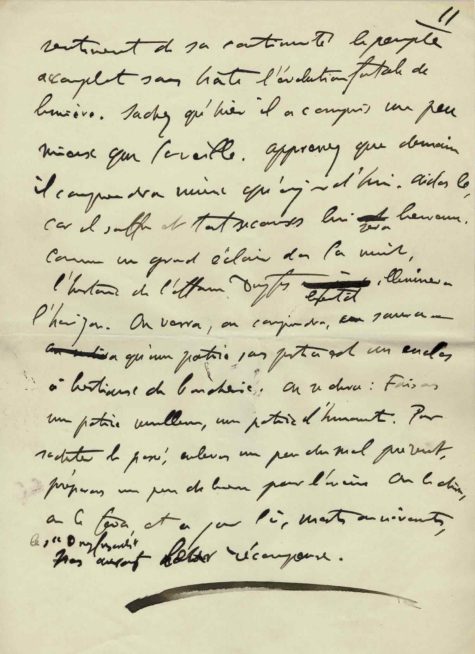 11
sentiment de sa continuité le peuple
accomplit sans hâte l'évolution fatale de
lumière. Sachez qu'hier il a compris un peu
mieux que la veille. Apprenez que demain
il comprendra mieux qu'aujourd'hui. Aidez le,
car il souffre et tout secours lui sera heureux.
Comme un grand éclair dans la nuit,
l'histoire de l'affaire Dreyfus illuminera
l'horizon. On verra, on comprendra, on saura
qu'une patrie sans justice est un enclos
à bestiaux de boucherie. On se dira : Faisons
une patrie meilleure, une patrie d'humanité. Pour
racheter le passé, enlevons un peu du mal présent,
préparons un peu de bien pour l'avenir. On le dira,
on le fera, et ce jour là, morts ou vivants,
les Dreyfusards
auront récompense.